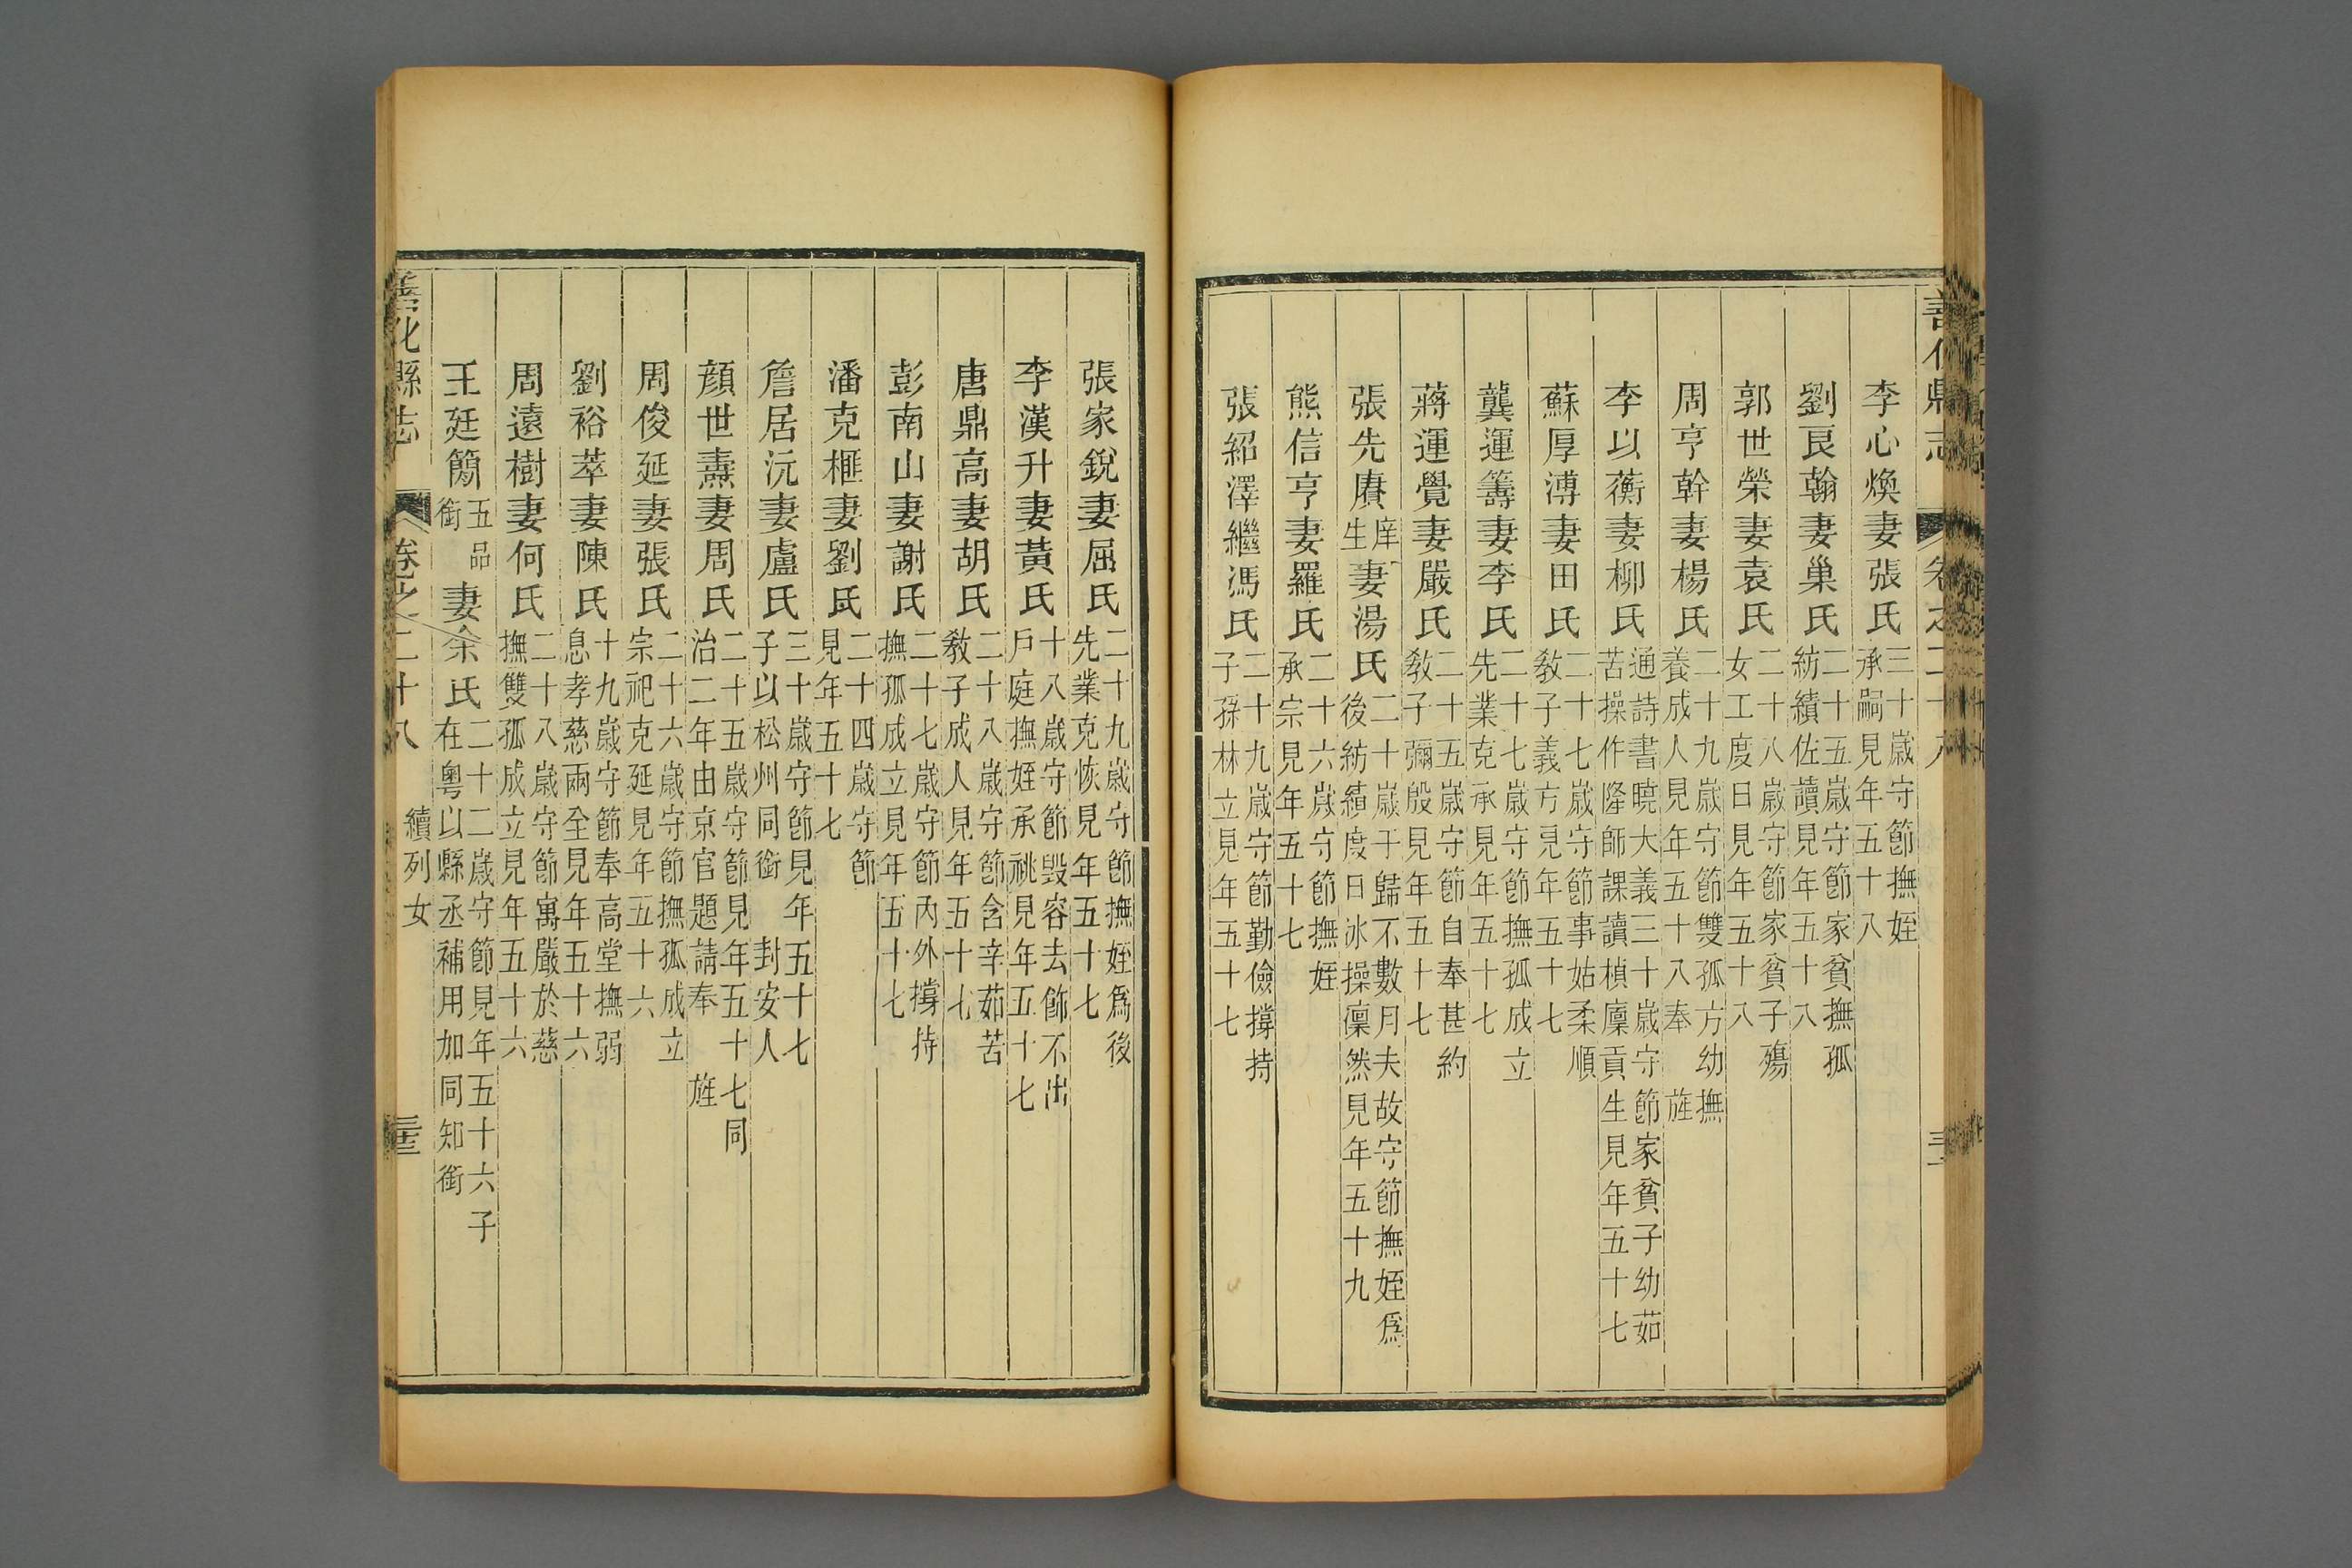 善化縣志 卷之二十八
李心煥妻張氏 三十歲守節撫姪
承嗣見年五十八
劉良翰妻巢氏 二十五歲守節家貧撫孤
紡績佐讀見年五十八
郭世榮妻袁氏 二十八歲守節家貧子殤
女工度日見年五十八
周亨幹妻楊氏 二十九歲守節雙孤方幼撫
養成人見年五十八奉 旌
李以蘅妻柳氏 通詩書曉大義三十歲守節家貧子幼茹
苦操作隆師課讀楨廩貢生見年五十七
蘇厚溥妻田氏 二十七歲守節事姑柔順
教子義方見年五十七
龔運籌妻李氏 二十七歲守節撫孤成立
先業克承見年五十七
蔣運覺妻嚴氏 二十五歲守節自奉甚約
教子彌殷見年五十七
張先賡庠生妻湯氏 二十歲于歸不數月夫故守節撫姪爲
後紡績度日冰操凜然見年五十九
熊信亨妻羅氏 二十六歲守節撫姪
承宗見年五十七
張紹澤繼馮氏 二十九歲守節勤儉撐持
子孫林立見年五十七
張家銳妻屈氏 二十九歲守節撫姪爲後
先業克恢見年五十七
李漢升妻黃氏 十八歲守節毀容去飾不出
戶庭撫姪承祧見年五十七
唐鼎高妻胡氏 二十八歲守節含辛茹苦
教子成人見年五十七
彭南山妻謝氏 二十七歲守節內外撐持
撫孤成立見年五十七
潘克榧妻劉氏 二十四歲守節
見年五十七
詹居沅妻盧氏 三十歲守節見年五十七
子以松州同銜 封安人
顏世燾妻周氏 二十五歲守節見年五十七同
治二年由京官題請奉 旌
周俊延妻張氏 二十六歲守節撫孤成立
宗祀克延見年五十六
劉裕萃妻陳氏 十九歲守節奉高堂撫弱
息孝慈兩全見年五十六
周遠樹妻何氏 二十八歲守節寓嚴於慈
撫雙孤成立見年五十六
王廷簡五品銜妻余氏 二十二歲守節見年五十六子
在粵以縣丞補用加同知銜
善化縣志 卷之二十八 續列女